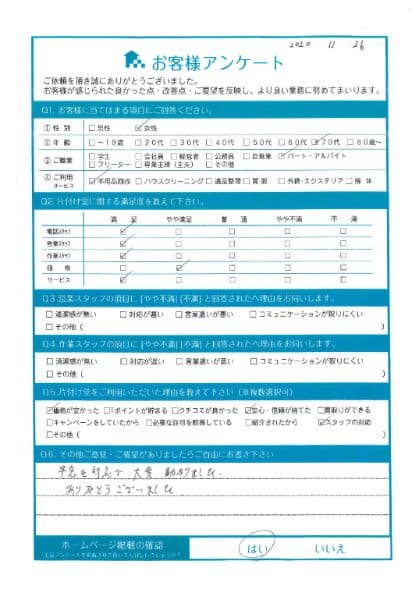 2020 12 26
お客様アンケート
ご依頼を頂き誠にありがとうございました。
お客様が感じられた良かった点・改善点・ご要望を反映し、より良い業務に努めてまいります。
Q1. お客様に当てはまる項目にご回答ください。
①性 別 □男性 ☑女性
②年 齢 □～19歳 □20代 □30代 □40代 □50代 □60代 ☑70代 □80歳～
③ご職業 □学生 □会社員 □経営者 □公務員 □自営業 ☑パート・アルバイト
□フリーター □専業主婦（主夫） □その他
④ご利用サービス ☑不用品回収 □ハウスクリーニング □遺品整理 □買取 □外構・エクステリア □解体
Q2. 片付け堂に関する満足度を教えて下さい。
満 足 やや満足 普 通 やや不満 不 満
電話スタッフ ☑ □ □ □ □
営業スタッフ ☑ □ □ □ □
作業スタッフ ☑ □ □ □ □
価 格 □ ☑ □ □ □
サービス ☑ □ □ □ □
Q3.営業スタッフの項目に［やや不満］［不満］と回答された方へ理由をお伺いします。
□清潔感が無い □対応が遅い □言葉遣いが悪い □コミュニケーションが取りにくい
□その他（ ）
Q4.作業スタッフの項目に［やや不満］［不満］と回答された方へ理由をお伺いします。
□清潔感が無い □対応が遅い □言葉遣いが悪い □コミュニケーションが取りにくい
□その他（ ）
Q5.片付け堂をご利用いただいた理由を教えて下さい（※複数選択可）
☑価格が安かった □Tポイントが貯まる □クチコミが良かった ☑安心・信頼が持てた □買取りができる
□キャンペーンをしていたから □必要な許可を取得している □紹介されたから ☑スタッフの対応
□その他（ ）
Q6. その他ご意見・ご要望がありましたらご自由にお書き下さい
早急な対応で 大変 助かりました。
ありがとうございました。
ホームページ掲載の確認
はい いいえ